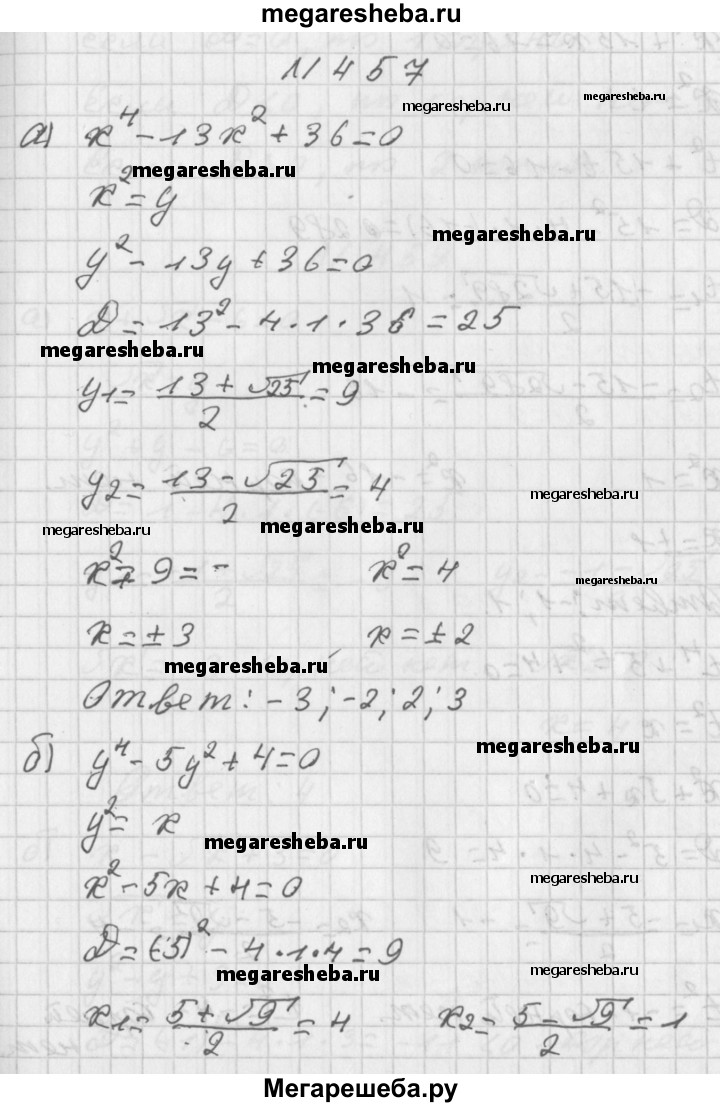 megaresheba.ru
N 457
megaresheba.ru
megaresheba.ru
а) x⁴ - 13x² + 36 = 0
megaresheba.ru
x² = y
megaresheba.ru
y² - 13y + 36 = 0
D = 13² - 4 · 1 · 36 = 25
megaresheba.ru
megaresheba.ru
y₁ = (13 + √25)/2 = 9
y₂ = (13 - √25)/2 = 4
megaresheba.ru
megaresheba.ru
megaresheba.ru
x² = 9 = - x² = 4
megaresheba.ru
x = ± 3 x = ± 2
megaresheba.ru
megaresheba.ru
Ответ: - 3; -2; 2; 3
б) y⁴ - 5y² + 4 = 0
megaresheba.ru
y² = x
megaresheba.ru
x² - 5x + 4 = 0
megaresheba.ru
D = (-5)² - 4 · 1 · 4 = 9
megaresheba.ru
megaresheba.ru
x₁ = (5 + √9)/2 = 4 x₂ = (5 - √9)/2 = 1
megaresheba.ru
Мегарешеба.ру